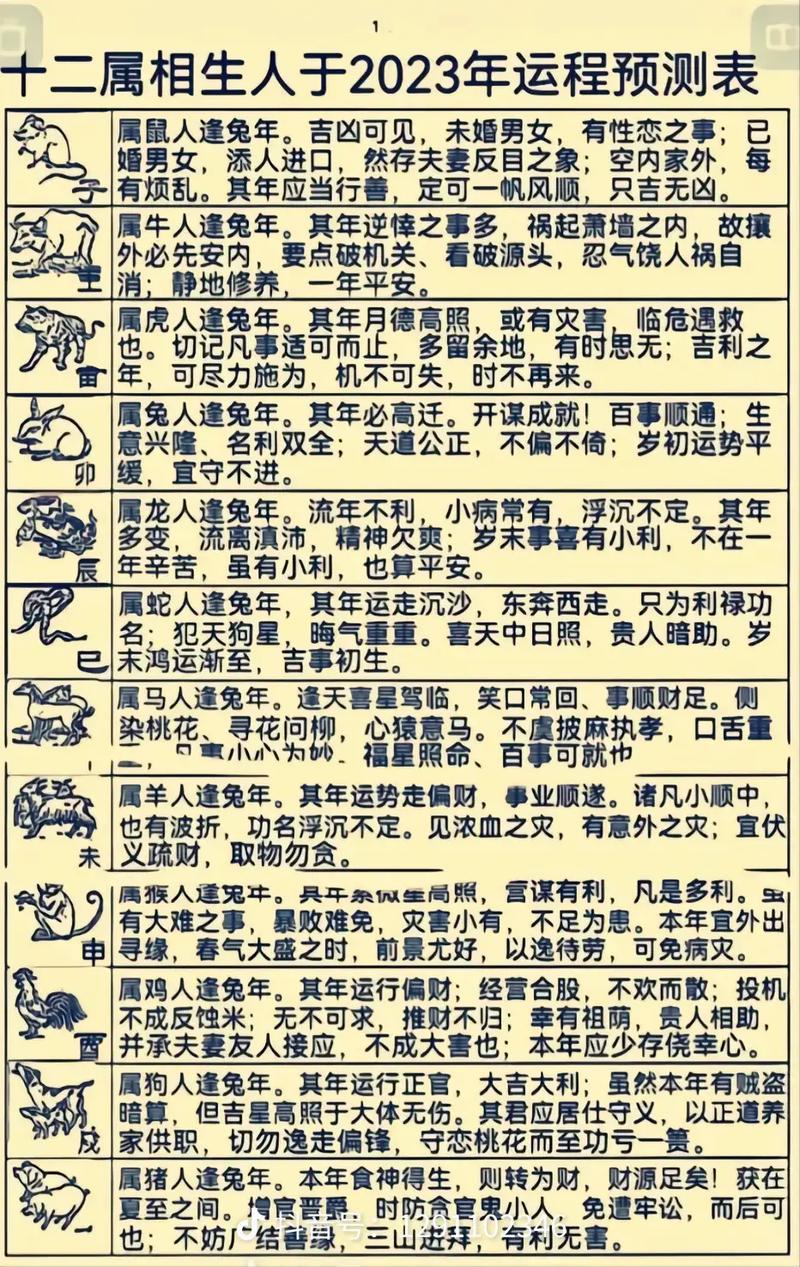 1
十二属相生人于2023年运程预测表
属鼠人逢兔年。吉凶可见，未婚男女，有性恋之事；已
婚男女，添人进口，然存夫妻反目之象；空内家外，每
有烦乱。其年应当行善，定可一帆风顺，只吉无凶。
子
属牛人逢兔年。其年逆悻之事多，祸起萧墙之内，故攘
外必先安内，要点破机关、看破源头，忍气饶人祸自
消；静地修养，一年平安。
属虎人逢兔年。其年月德高照，或有灾害，临危遇救
也。切记凡事适可而止，多留余地，有时思无；吉利之
年，可尽力施为，机不可失，时不再来。
属兔人逢兔年。其年必高迁。开谋成就！百事顺通；生
意兴隆、名利双全；天道公正，不偏不倚；岁初运势平
缓，宜守不进。
卯
属龙人逢兔年。流年不利，小病常有，浮沉不定。其年
多变，流离滇沛，精神欠爽；岁末事喜有小利，不在一
年辛苦，虽有小利，也算平安。
辰
属蛇人逢兔年，其年运走沉沙，东奔西走。只为利禄功
名；犯天狗星，晦气重重。喜天中日照，贵人暗助。岁
末鸿运渐至，吉事初生。
巳
属马人逢兔年。逢天喜星驾临，笑口常回、事顺财足。侧
染桃花、寻花问柳，心猿意马。不虞披麻执孝，口舌重
事小心为妙。福星照命、百事可就也
属羊人逢兔年。其年运势走偏财，事业顺遂。诸凡小顺中，
也有波折，功名浮沉不定。见浓血之灾，有意外之灾；宜伏
义疏财，取物勿贪。
未
属猴人逢兔年。其年紫微星高照，营谋有利，凡是多利。虽
有大难之事，暴败难免，灾害小有，不足为患。本年宜外出
寻缘，春气大盛之时，前景尤好，以逸待劳，可免病灾。
申
属鸡人逢兔年。其年运行偏财；经营合股，不欢而散；投机
不成反蚀米；无不可求，推财不归；幸有祖荫，贵人相助，
并承夫妻友人接应，不成大害也；本年应少存侥幸心。
酉
属狗人逢兔年。其年运行正官，大吉大利；虽然本年有贼盗
暗算，但吉星高照于大体无伤。其君应居仕守义，以正道养
家供职，切勿逸走偏锋，守恋桃花而至功亏一篑。
戍
属猪人逢兔年。本年食神得生，则转为财，财源足矣！获在
夏至之间。增官晋爵，时防贪官鬼小人，免遭牢讼，而后可
也；不妨广结善缘，三山进拜，有利无害。
抖音号：1291102346